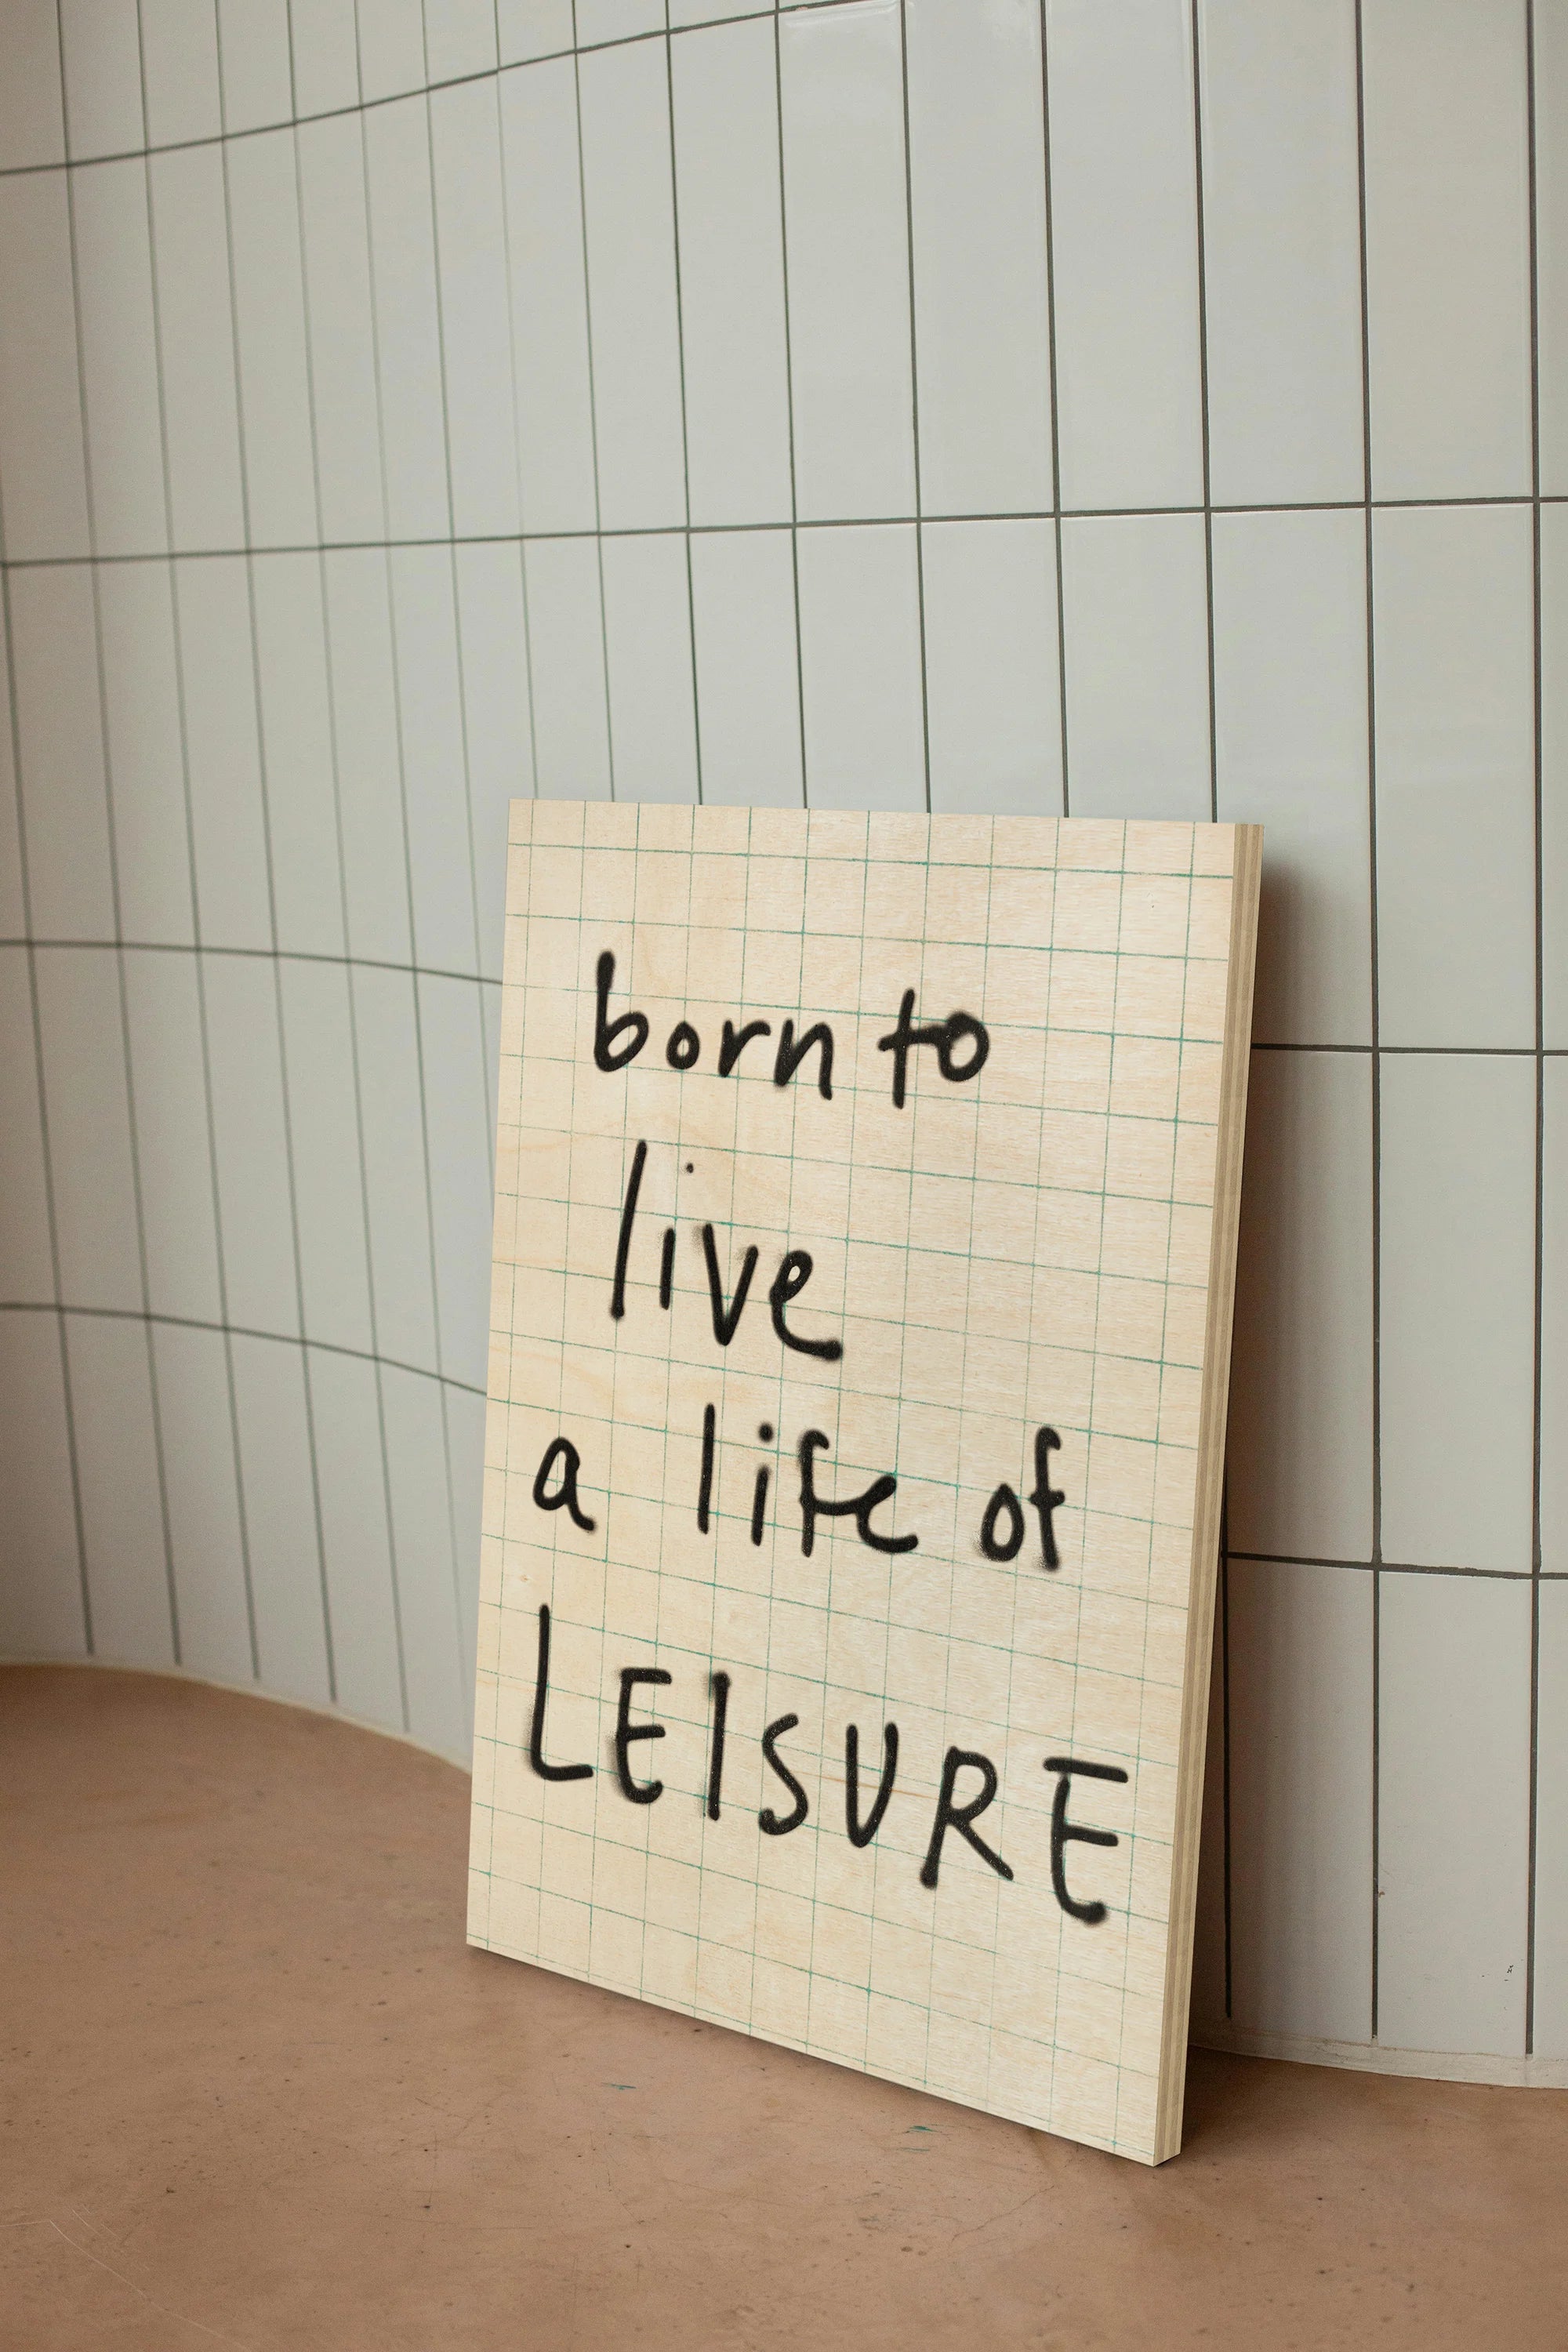 born to
live
a life of
LEISURE